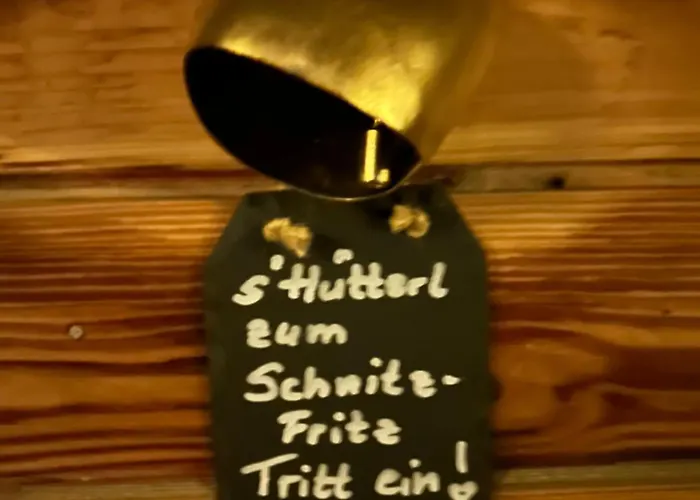 s'Hütterl
zum
Schnitz-
Fritz
Tritt ein!